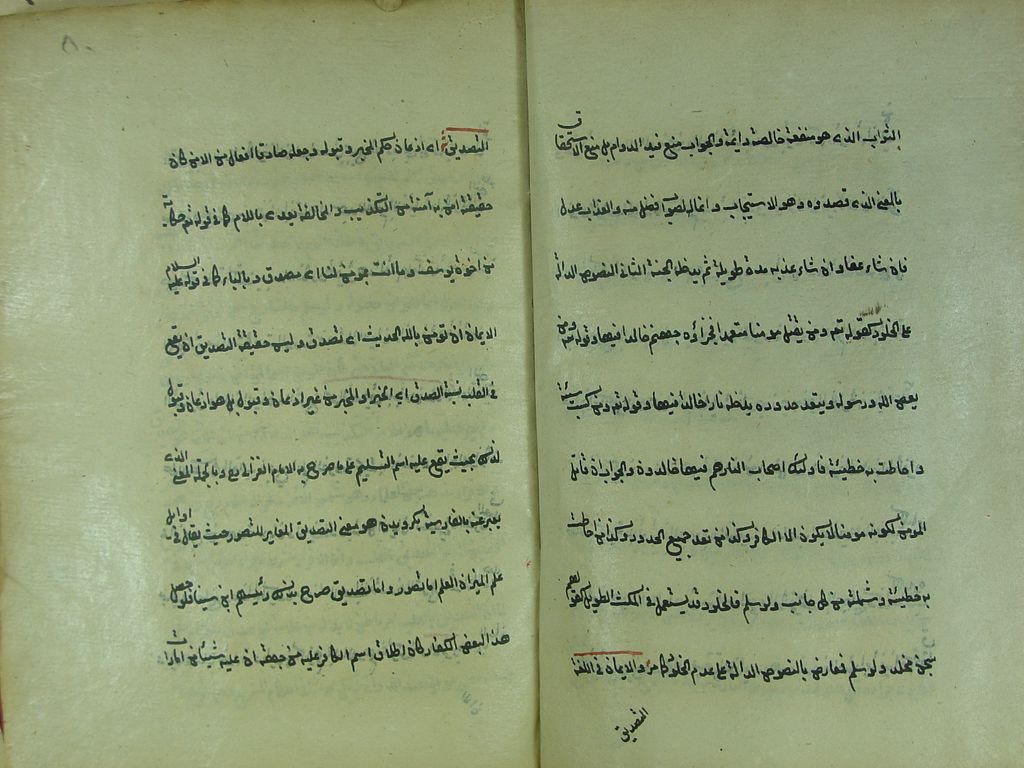 الثواب الذى هو منفعة خالصة دايمة والجواب منع قيد الدوام بل منع الاستحقاق
بالمعنى الذى قصدوه وهو الاستيجاب وانما الثواب فضل منه والعذاب عدل
فان شاء عفا وان شاء عذبه مدة طويلة ثم يدخله الجنة الثانى النصوص الدالة
على الخلود كقوله تع ومن يقتل مومنا متعمدا فجزاؤه جهنم خالدا فيها وقوله تع ومن
يعص الله ورسوله ويتعد حدوده يدخله نارا خالدا فيها وقوله تع من كسب سيئة
واحاطت به خطيئته فاولئك اصحاب النار هم فيها خالدون والجواب ان قاتل
المومن لكونه مومنا لا يكون الا الكافر وكذا من تعد جميع الحدود وكذا من احاطت
به خطيئته وشملته من كل جانب ولو سلم فالخلود قد يستعمل فى المكث الطويل كقولهم
سجن مخلد ولو سلم فمعارض بالنصوص الدالة على عدم الخلود كما مر والايمان فى اللغة
التصديق
٨٠
التصديق اى اذعان لحكم المخبر وقبوله وجعله صادقا افعال من الامن كان
حقيقة امن به آمنه من التكذيب والمخالفة يعدى باللام كما فى قوله تع حكاية
من اخوة يوسف وما انت بمومن لنا اى مصدق وبالباء كما فى قوله عليه السلام
الايمان ان تومن بالله الحديث اى تصدق وليس حقيقة التصديق ان يقع
فى القلب نسبة الصدق الى الخبر او المخبر من غير اذعان وقبول بل هو اذعان وقبول
لذلك بحيث يقع عليه اسم التسليم على ما صرح به الامام الغزالى وبالجملة المعنى الذى
يعبر عنه بالفارسية بكرويدن هو معنى التصديق المقابر للتصور حيث يقال فى اوايل
علم الميزان العلم اما تصور واما تصديق صرح بذلك رئيسهم ابن سينا فلو حصل
هذا المعنى لبعض الكفار كان اطلاق اسم الكافر عليه من جهة ان عليه شيئا من امارات